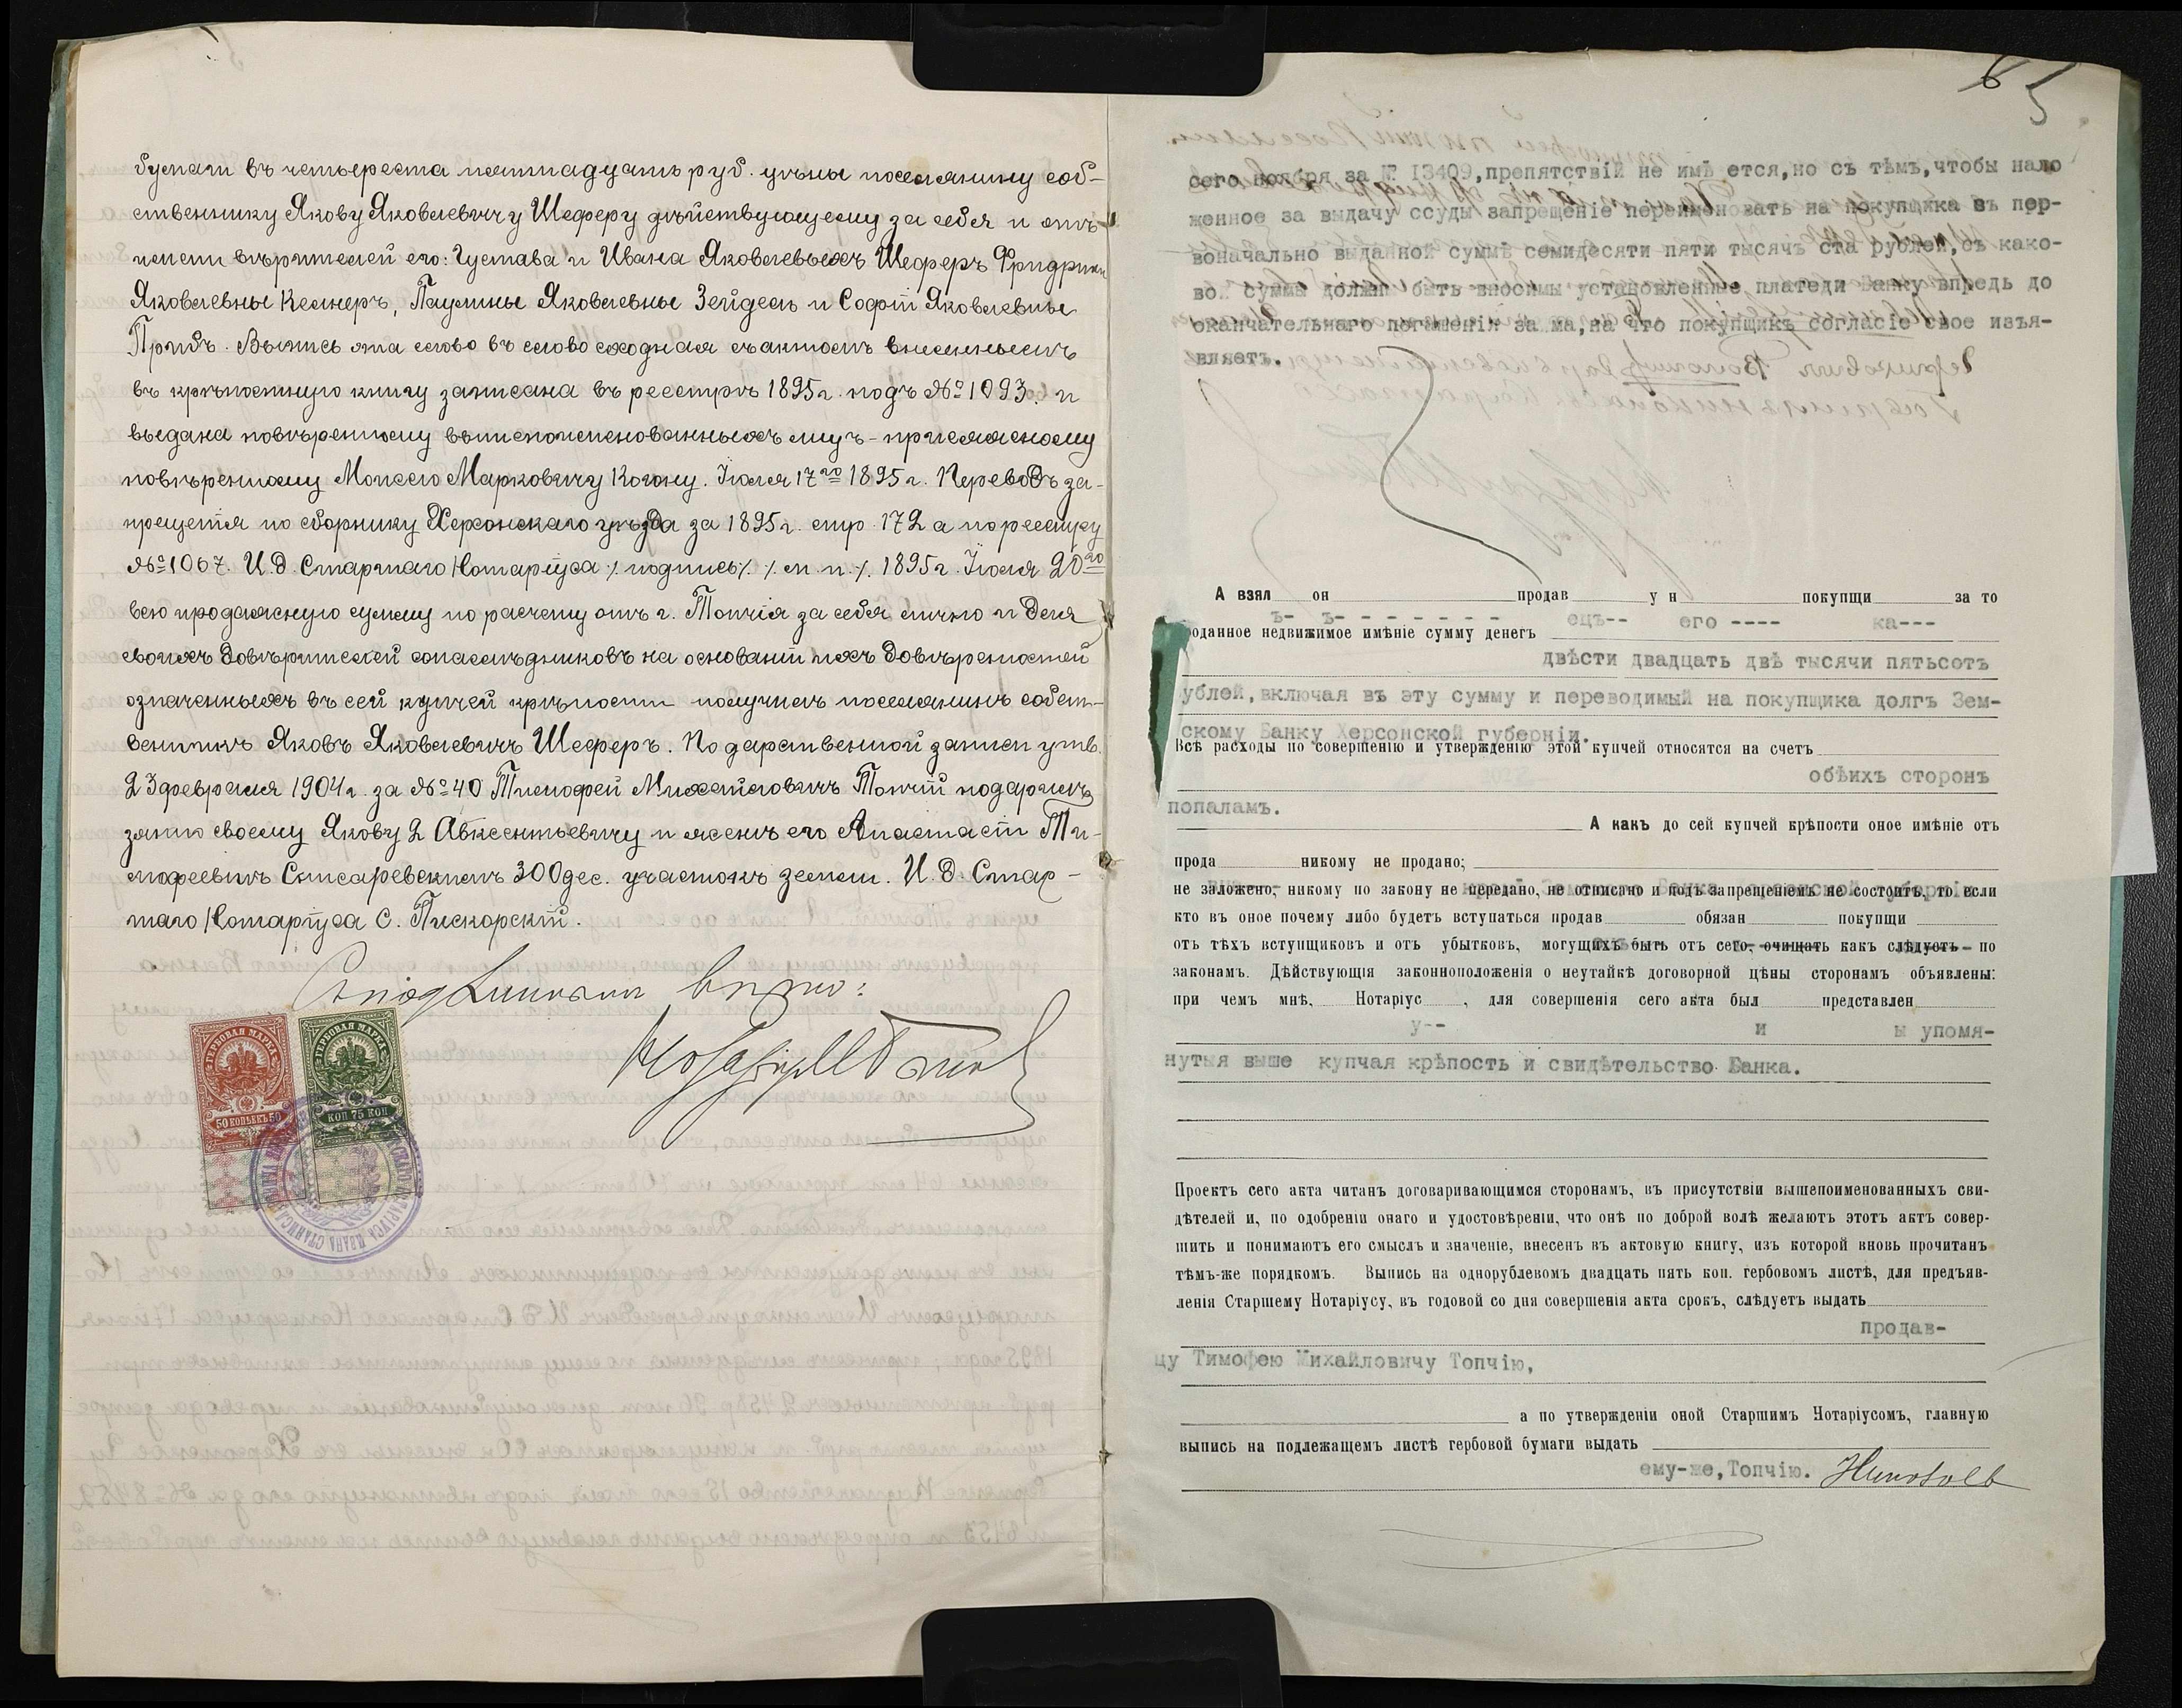 бумаги въ четыреста пятнадцать руб. цѣны поселянину соб-
ственнику Якову Яковлевичу Шеферу дѣйствующему за себя и отъ
имени вѣрителей его: Густава и Ивана Яковлевыхъ Шеферъ Фридрики
Яковлевны Келнеръ, Паулины Яковлевны Зейдель и Софіи Яковлевны
Придъ. Выпись эта слово въ слово сходная съ актомъ внесеннымъ
въ крѣпостную книгу записана въ реестрѣ 1895 г. подъ № 1093. и
выдана повѣренному вышепоименованныхъ лицъ - присяжному
повѣренному Моисею Марковичу Когону. Іюля 17го 1895 г. Переводъ за-
прещенія по сборнику Херсонскаго уѣзда за 1895 г. стр. 172 а по реестру
№ 1067. И. д. Старшаго Нотаріуса ./. подпись ./. ./. м. п. ./. 1895 г. Іюля 20го
всю продажную сумму по расчету отъ г. Топчія за себя лично и для
своихъ довѣрителей сонаслѣдниковъ на основаніи ихъ довѣренностей
означенныхъ въ сей купчей крѣпости получилъ поселянинъ собст-
венникъ Яковъ Яковлевичъ Шеферъ. По дарственной записи утв.
23 февраля 1904 г. за № 40 Тимофей Михайловичъ Топчій подарилъ
зятю своему Якову 2 Авксентьевичу и женѣ его Анастасіи Ти-
мофеевнѣ Снисаревскимъ 300 дес. участокъ земли. И. д. Стар-
шаго Нотаріуса С. Пискорскій.
вѣрно:
ГЕРБОВАЯ МАРКА
50 КОПѢЕКЪ 50
ГЕРБОВАЯ МАРКА
КОП 75 КОП
5
сего ноября за № 13409, препятствій не имѣ ется, но съ тѣмъ, чтобы нало
женное за выдачу ссуды запрещеніе переименовать на покупщика въ пер-
воначально выданной суммѣ семидесяти пяти тысячъ ста рублей, съ како-
вой суммы должны быть вносимы установленные платежи Банку впредь до
окончательнаго погашенія займа, на что покупщикъ согласіе свое изъя-
вляетъ.
А взял он продав у н покупщи за то
ъ- ъ- - - - - - - ецъ-- его ---- ка---
роданное недвижимое имѣніе сумму денегъ
двѣсти двадцать двѣ тысячи пятьсотъ
ублей, включая въ эту сумму и переводимый на покупщика долгъ Зем-
скому Банку Херсонской губерніи.
Всѣ расходы по совершенію и утвержденію этой купчей относятся на счетъ
обѣихъ сторонъ
попаламъ.
А какъ до сей купчей крѣпости оное имѣніе отъ
прода никому не продано;
не заложено, никому по закону не передано, не отписано и подъ запрещеніемъ не состоитъ, то если
кто въ оное почему либо будетъ вступаться продав обязан покупщи
отъ тѣхъ вступщиковъ и отъ убытковъ, могущихъ быть отъ сего, очищать какъ слѣдуетъ по
законамъ. Дѣйствующія законноположенія о неутайкѣ договорной цѣны сторонамъ объявлены:
при чемъ мнѣ, Нотаріус , для совершенія сего акта был представлен
у-- и ы упомя-
нутыя выше купчая крѣпость и свидѣтельство Банка.
Проектъ сего акта читанъ договаривающимся сторонамъ, въ присутствіи вышепоименованныхъ сви-
дѣтелей и, по одобреніи онаго и удостовѣреніи, что онѣ по доброй волѣ желаютъ этотъ актъ совер-
шить и понимаютъ его смыслъ и значеніе, внесенъ въ актовую книгу, изъ которой вновь прочитанъ
тѣмъ-же порядкомъ. Выпись на однорублевомъ двадцать пять коп. гербовомъ листѣ, для предъяв-
ленія Старшему Нотаріусу, въ годовой со дня совершенія акта срокъ, слѣдуетъ выдать
продав-
цу Тимофею Михайловичу Топчію,
а по утвержденіи оной Старшимъ Нотаріусомъ, главную
выпись на подлежащемъ листѣ гербовой бумаги выдать
ему-же, Топчію.